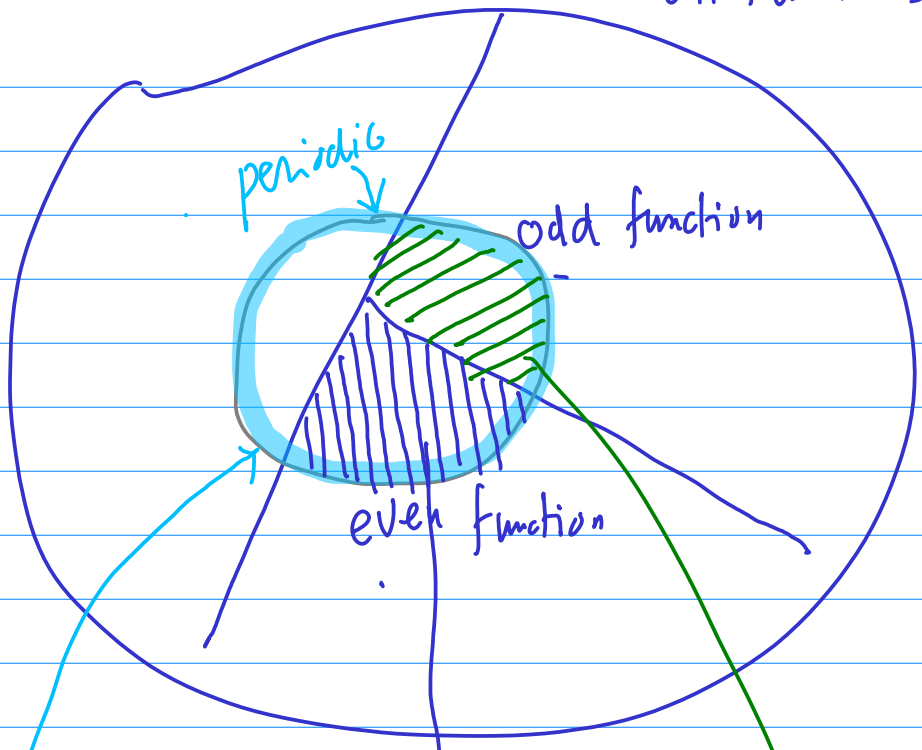 periodic
odd function
even function